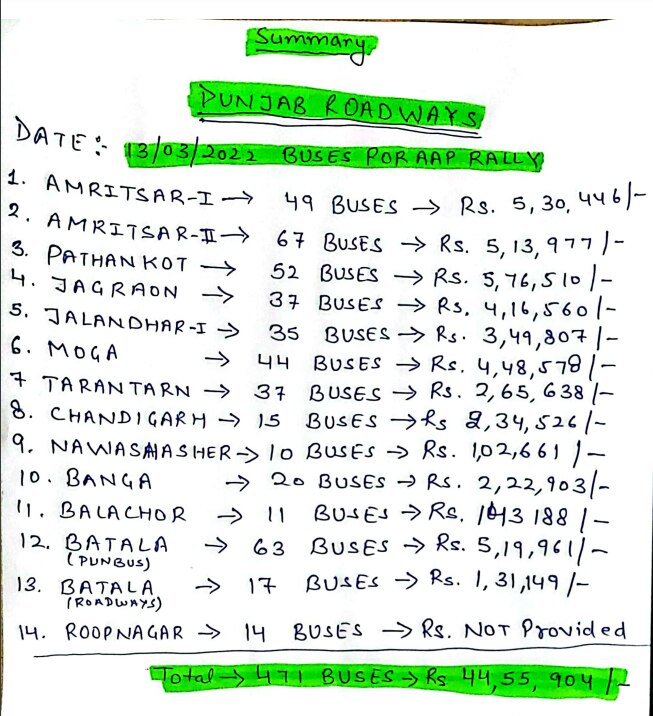 Summary
PUNJAB ROADWAYS
DATE:- 13/03/2022 BUSES FOR AAP RALLY
1. AMRITSAR-I → 49 BUSES → Rs. 5,30,446/-
2. AMRITSAR-II → 67 BUSES → Rs. 5,13,977/-
3. PATHANKOT → 52 BUSES → Rs. 5,76,510/-
4. JAGRAON → 37 BUSES → Rs. 4,16,560/-
5. JALANDHAR-I → 35 BUSES → Rs. 3,49,807/-
6. MOGA → 44 BUSES → Rs. 4,48,578/-
7 TARANTARN → 37 BUSES → Rs. 2,65,638/-
8. CHANDIGARH → 15 BUSES → Rs 2,34,526/-
9. NAWASHASHER → 10 BUSES → Rs. 1,02,661/-
10. BANGA → 20 BUSES → Rs. 2,22,903/-
11. BALACHOR → 11 BUSES → Rs. 143188/-
12. BATALA → 63 BUSES → Rs. 5,19,961/-
(PUNBUS)
13. BATALA → 17 BUSES → Rs. 1,31,149/-
(ROADWAYS)
14. ROOPNAGAR → 14 BUSES → Rs. NOT Provided
Total → 471 BUSES → Rs 44,55,904/-